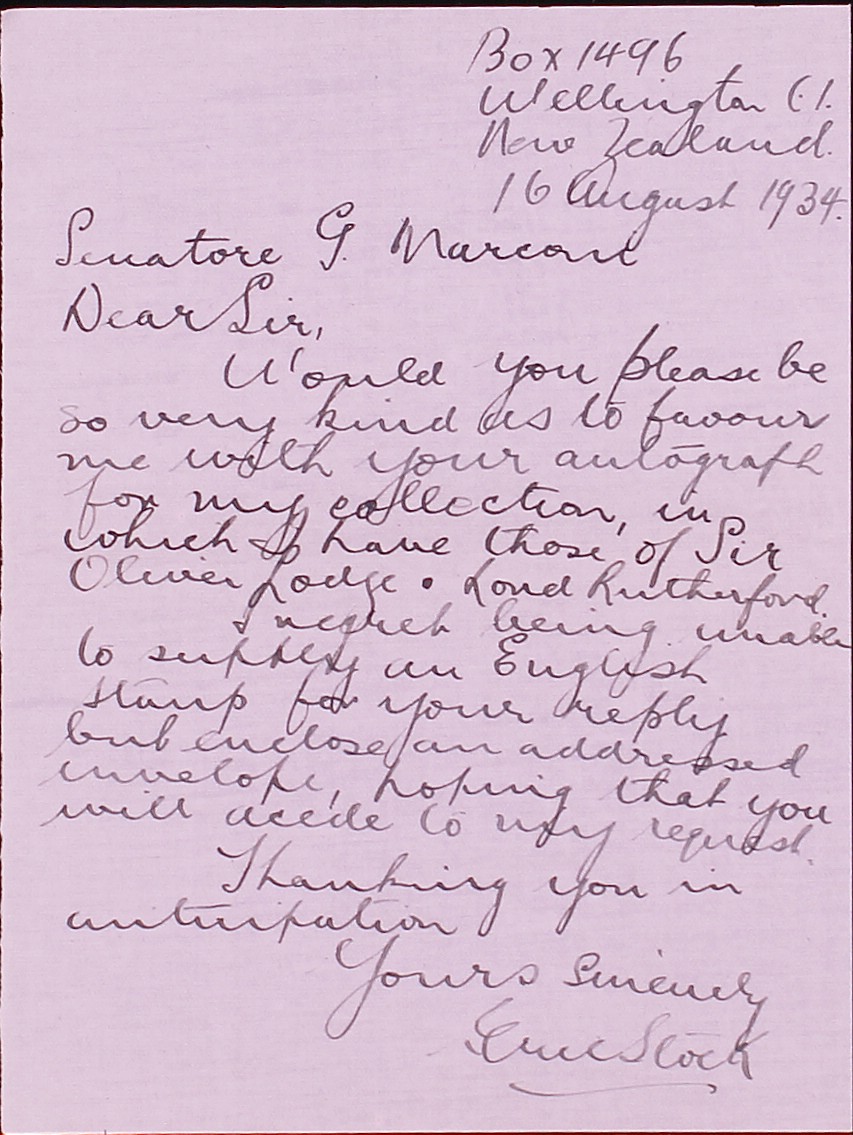 Box 1496
Wellington C.1.
New Zealand.
16 August 1934.
Senatore G. Marconi
Dear Sir,
Would you please be
so very kind as to favour
me with your autograph
for my collection, in
which I have those of Sir
Oliver Lodge & Lord Rutherford.
I regret being unable
to supply an English
stamp for your reply
but enclose an addressed
envelope, hoping that you
will acede to my request.
Thanking you in
anticipation
Yours sincerely
Eric Stock